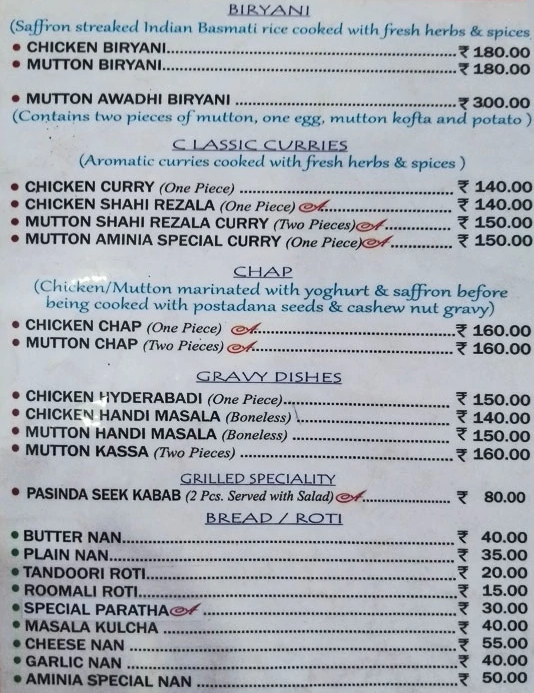 BIRYANI
(Saffron streaked Indian Basmati rice cooked with fresh herbs & spices
• CHICKEN BIRYANI ₹ 180.00
• MUTTON BIRYANI ₹ 180.00
• MUTTON AWADHI BIRYANI ₹ 300.00
(Contains two pieces of mutton, one egg, mutton kofta and potato )
CLASSIC CURRIES
(Aromatic curries cooked with fresh herbs & spices )
• CHICKEN CURRY (One Piece) ₹ 140.00
• CHICKEN SHAHI REZALA (One Piece) A ₹ 140.00
• MUTTON SHAHI REZALA CURRY (Two Pieces) A ₹ 150.00
• MUTTON AMINIA SPECIAL CURRY (One Piece) A ₹ 150.00
CHAP
(Chicken/Mutton marinated with yoghurt & saffron before
being cooked with postadana seeds & cashew nut gravy)
• CHICKEN CHAP (One Piece) A ₹ 160.00
• MUTTON CHAP (Two Pieces) A ₹ 160.00
GRAVY DISHES
• CHICKEN HYDERABADI (One Piece) ₹ 150.00
• CHICKEN HANDI MASALA (Boneless) ₹ 140.00
• MUTTON HANDI MASALA (Boneless) ₹ 150.00
• MUTTON KASSA (Two Pieces) ₹ 160.00
GRILLED SPECIALITY
• PASINDA SEEK KABAB (2 Pcs. Served with Salad) A ₹ 80.00
BREAD / ROTI
• BUTTER NAN ₹ 40.00
• PLAIN NAN ₹ 35.00
• TANDOORI ROTI ₹ 20.00
• ROOMALI ROTI ₹ 15.00
• SPECIAL PARATHA A ₹ 30.00
• MASALA KULCHA ₹ 40.00
• CHEESE NAN ₹ 55.00
• GARLIC NAN ₹ 40.00
• AMINIA SPECIAL NAN ₹ 50.00